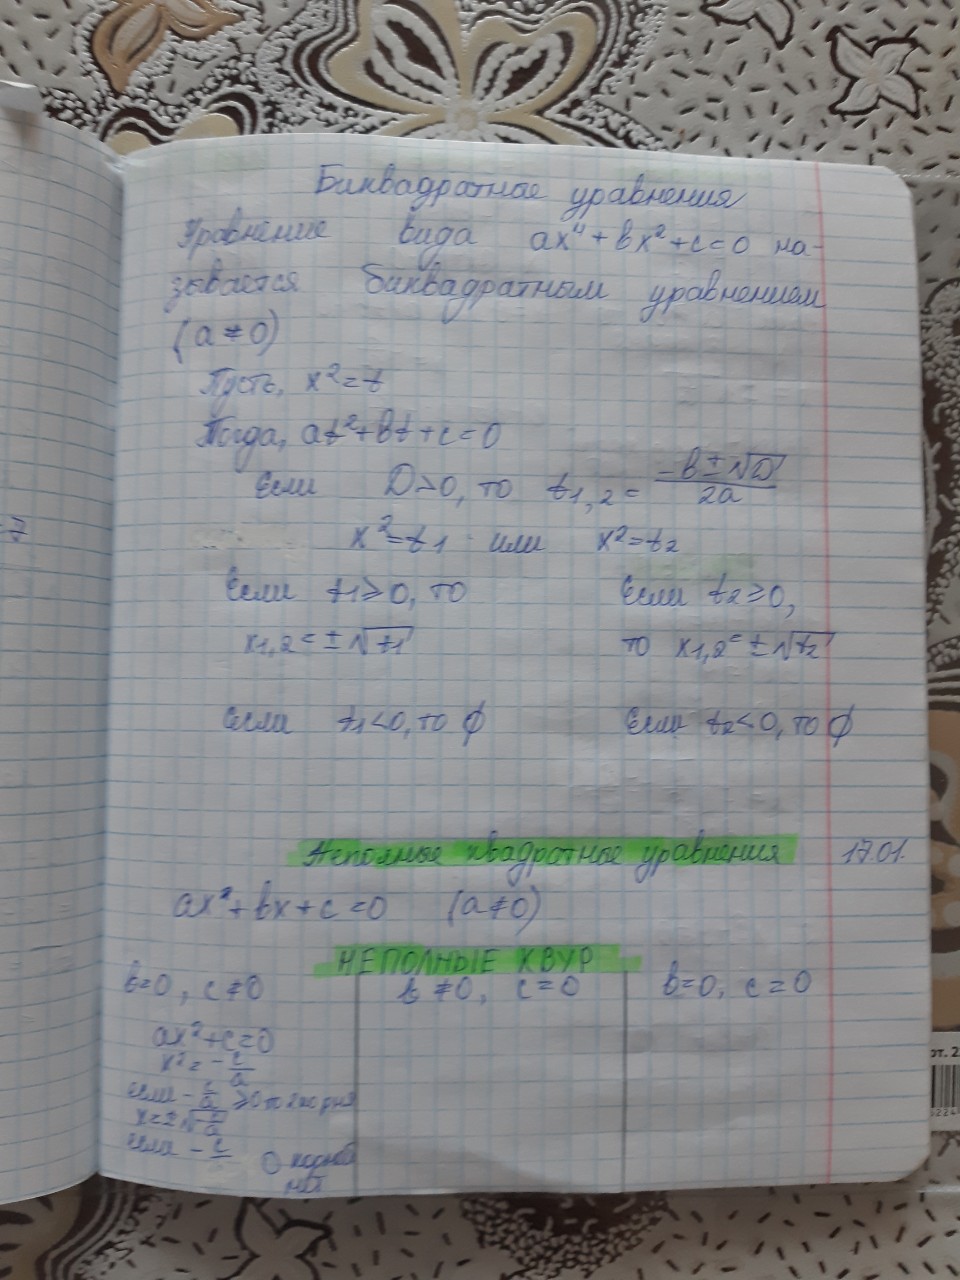 Биквадратные уравнения
Уравнение вида ax⁴ + bx² + c = 0 на-
зывается биквадратным уравнением
(a ≠ 0)
Пусть, x² = t
Тогда, at² + bt + c = 0
Если D > 0, то t1,2 = (-b ± √D)/2a
x² = t1 или x² = t2
Если t1 ≥ 0, то Если t2 ≥ 0,
x1,2 = ± √t1 то x1,2 = ± √t2
Если t1 < 0, то ∅ Если t2 < 0, то ∅
Неполные квадратные уравнения 17.01.
ax² + bx + c = 0 (a ≠ 0)
НЕПОЛНЫЕ КВУР
b = 0, c ≠ 0 b ≠ 0, c = 0 b = 0, c = 0
ax² + c = 0
x² = - c/a
если - c/a ≥ 0 то 2 корня
x = ± √(-c/a)
если - c 0 корней
нет